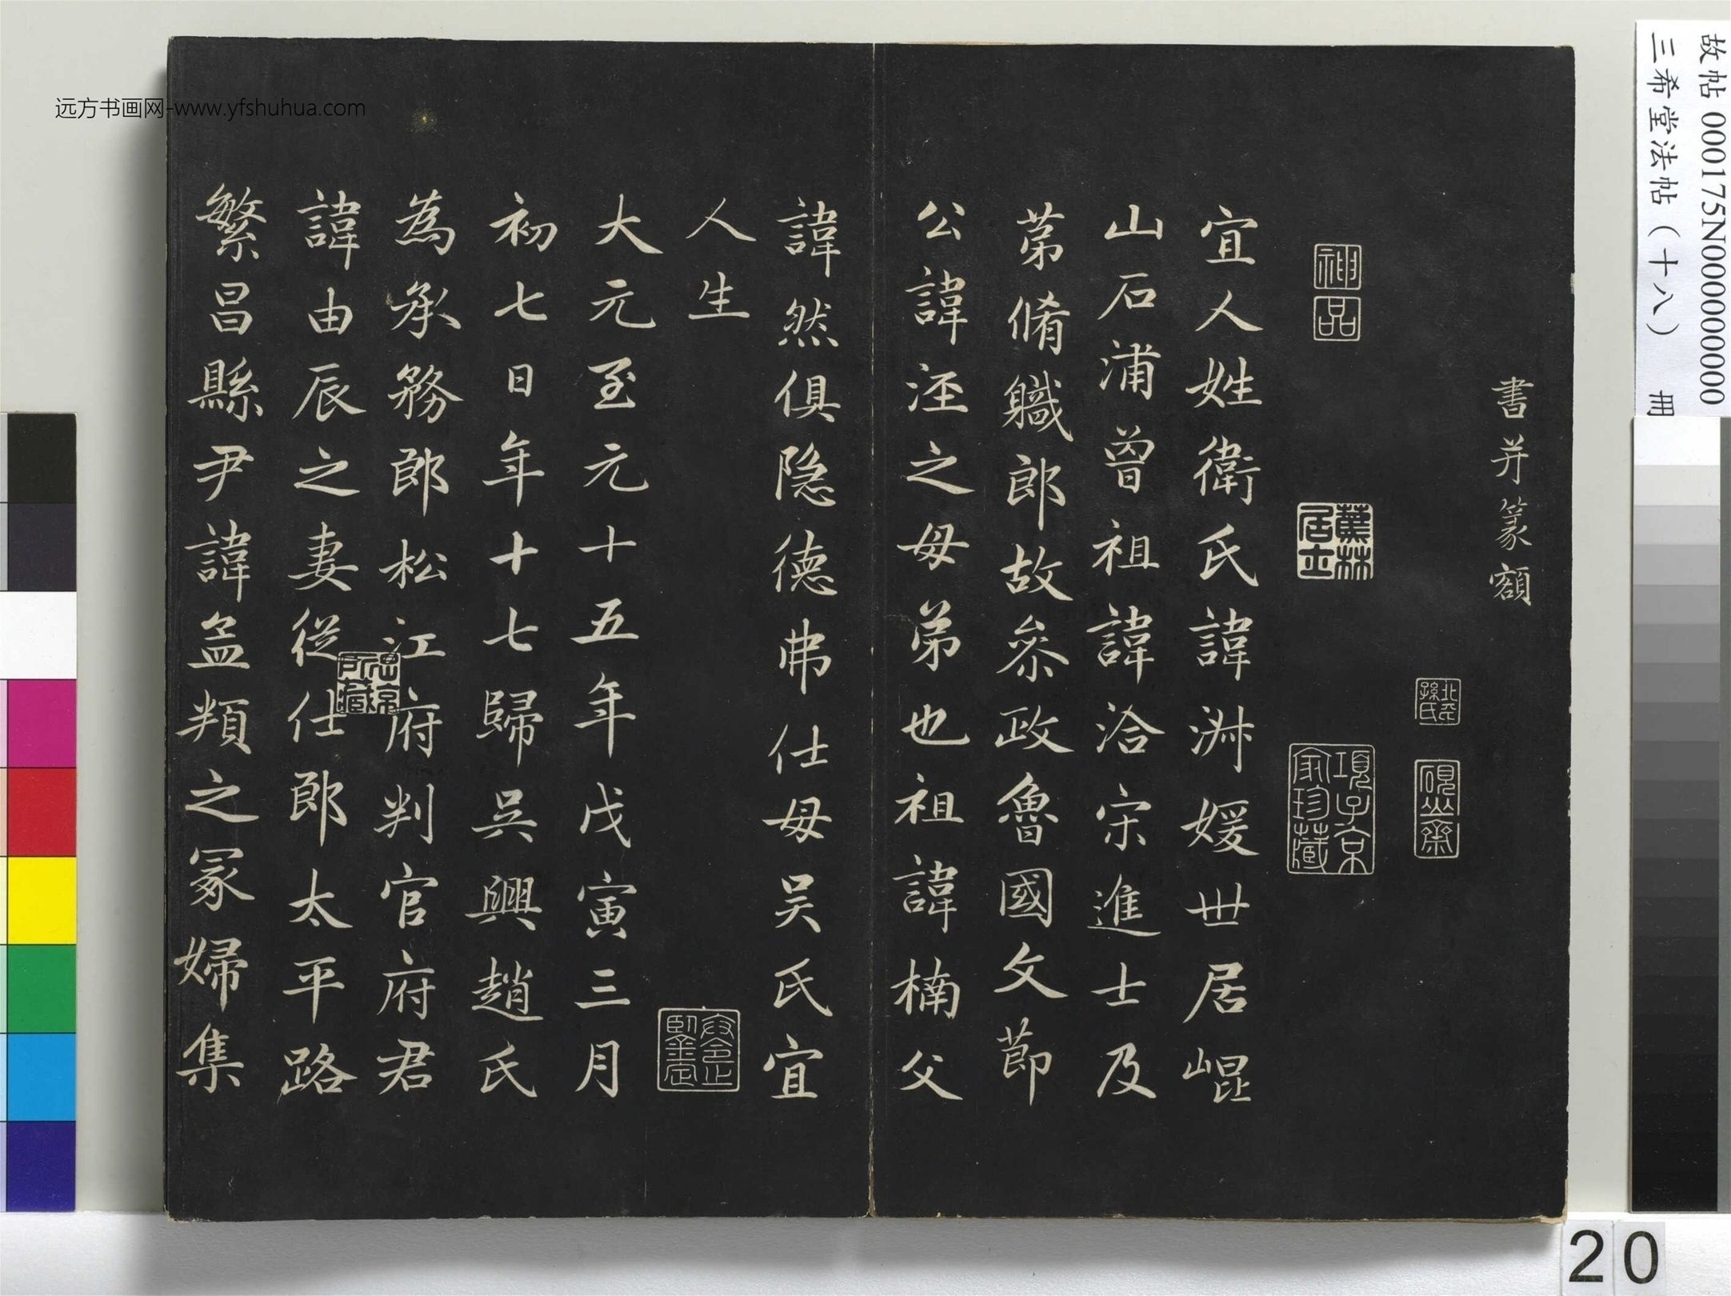 書并篆額
神品
蕉林居士
北平孫氏
項子京家珍藏
硯山齋
宜人姓衛氏諱淑媛世居崐
山石浦曾祖諱洽宋進士及
苐脩職郎故叅政魯國文莭
公諱涇之母弟也祖諱楠父
諱然俱隐德弗仕母吴氏宜
人生
大元至元十五年戊寅三月
初七日年十七歸吴興趙氏
為承務郎松江府判官府君
諱由辰之妻從仕郎太平路
繁昌縣尹諱孟頖之冢婦集
故帖 000175N000000000
三希堂法帖（十八） 册
20
远方书画网-www.yfshuhua.com